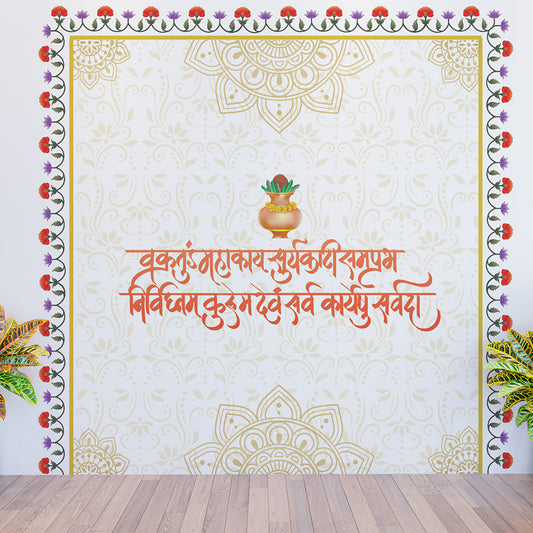 वक्रतुंड महाकाय सुर्यकोटी समप्रभ
निर्विघ्नम कुरुम देवं सर्व कार्येषु सर्वदा